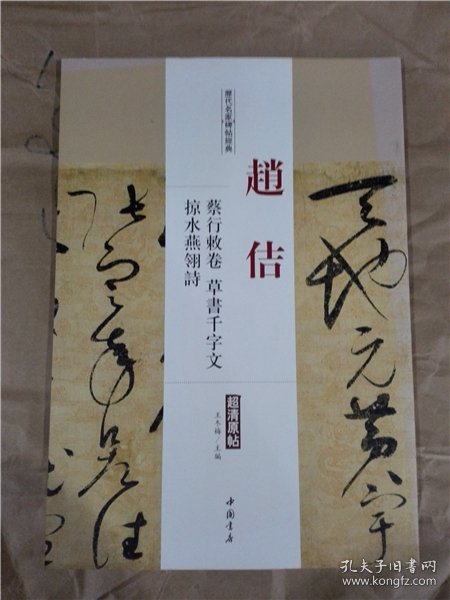 歷代名家碑帖經典
趙佶
蔡行敕卷 草書千字文
掠水燕翎詩
超清原帖
王冬梅/主編
中国書店
天地元黄宇
張寒來暑往
孔夫子旧书网
www.kongfz.com